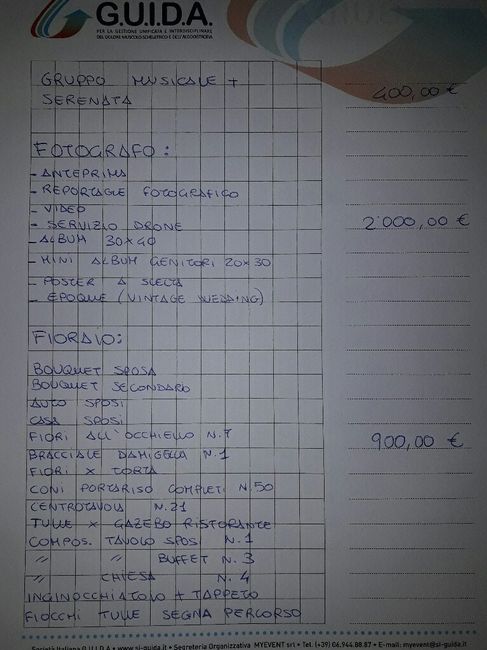 G.U.I.D.A.
PER LA GESTIONE UNIFICATA E INTERDISCIPLINARE
DEL DOLORE MUSCOLOSCHELETRICO E DELL'ALGODISTROFIA
GRUPPO MUSICALE +
SERENATA 400,00 €
FOTOGRAFO:
- ANTEPRIMA
- REPORTAGE FOTOGRAFICO
- VIDEO
- SERVIZIO DRONE 2'000,00 €
- ALBUM 30x40
- MINI ALBUM GENITORI 20x30
- POSTER A SCELTA
- EPOQUE (VINTAGE WEDDING)
FIORAIO:
BOUQUET SPOSA
BOUQUET SECONDARIO
AUTO SPOSI
CASA SPOSI
FIORI ALL'OCCHIELLO N.7 900,00 €
BRACCIALE DAMIGELLA N.1
FIORI x TORTA
CONI PORTARISO COMPLETI N.50
CENTROTAVOLA N.21
TULLE x GAZEBO RISTORANTE
COMPOS. TAVOLO SPOSI N.1
" " BUFFET N.3
" CHIESA N.4
INGINOCCHIATOIO + TAPPETO
FIOCCHI TULLE SEGNA PERCORSO
Società Italiana G.U.I.D.A. • www.si-guida.it • Segreteria Organizzativa MYEVENT srl • Tel. (+39) 06.944.88.87 • E-mail: myevent@si-gui